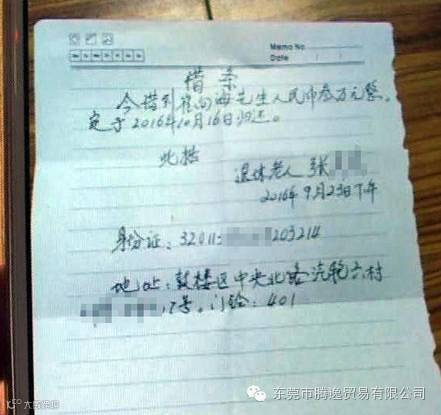 Memo No.
Date
借条
今借到崔向海先生人民币叁万元整。
定于2016年10月16日归还。
此据
退休老人 张
2016年9月23日下午
身份证：32011 203214
地址：鼓楼区中央北路汽轮六村
17号，门铃：401
东莞市腾逸贸易有限公司